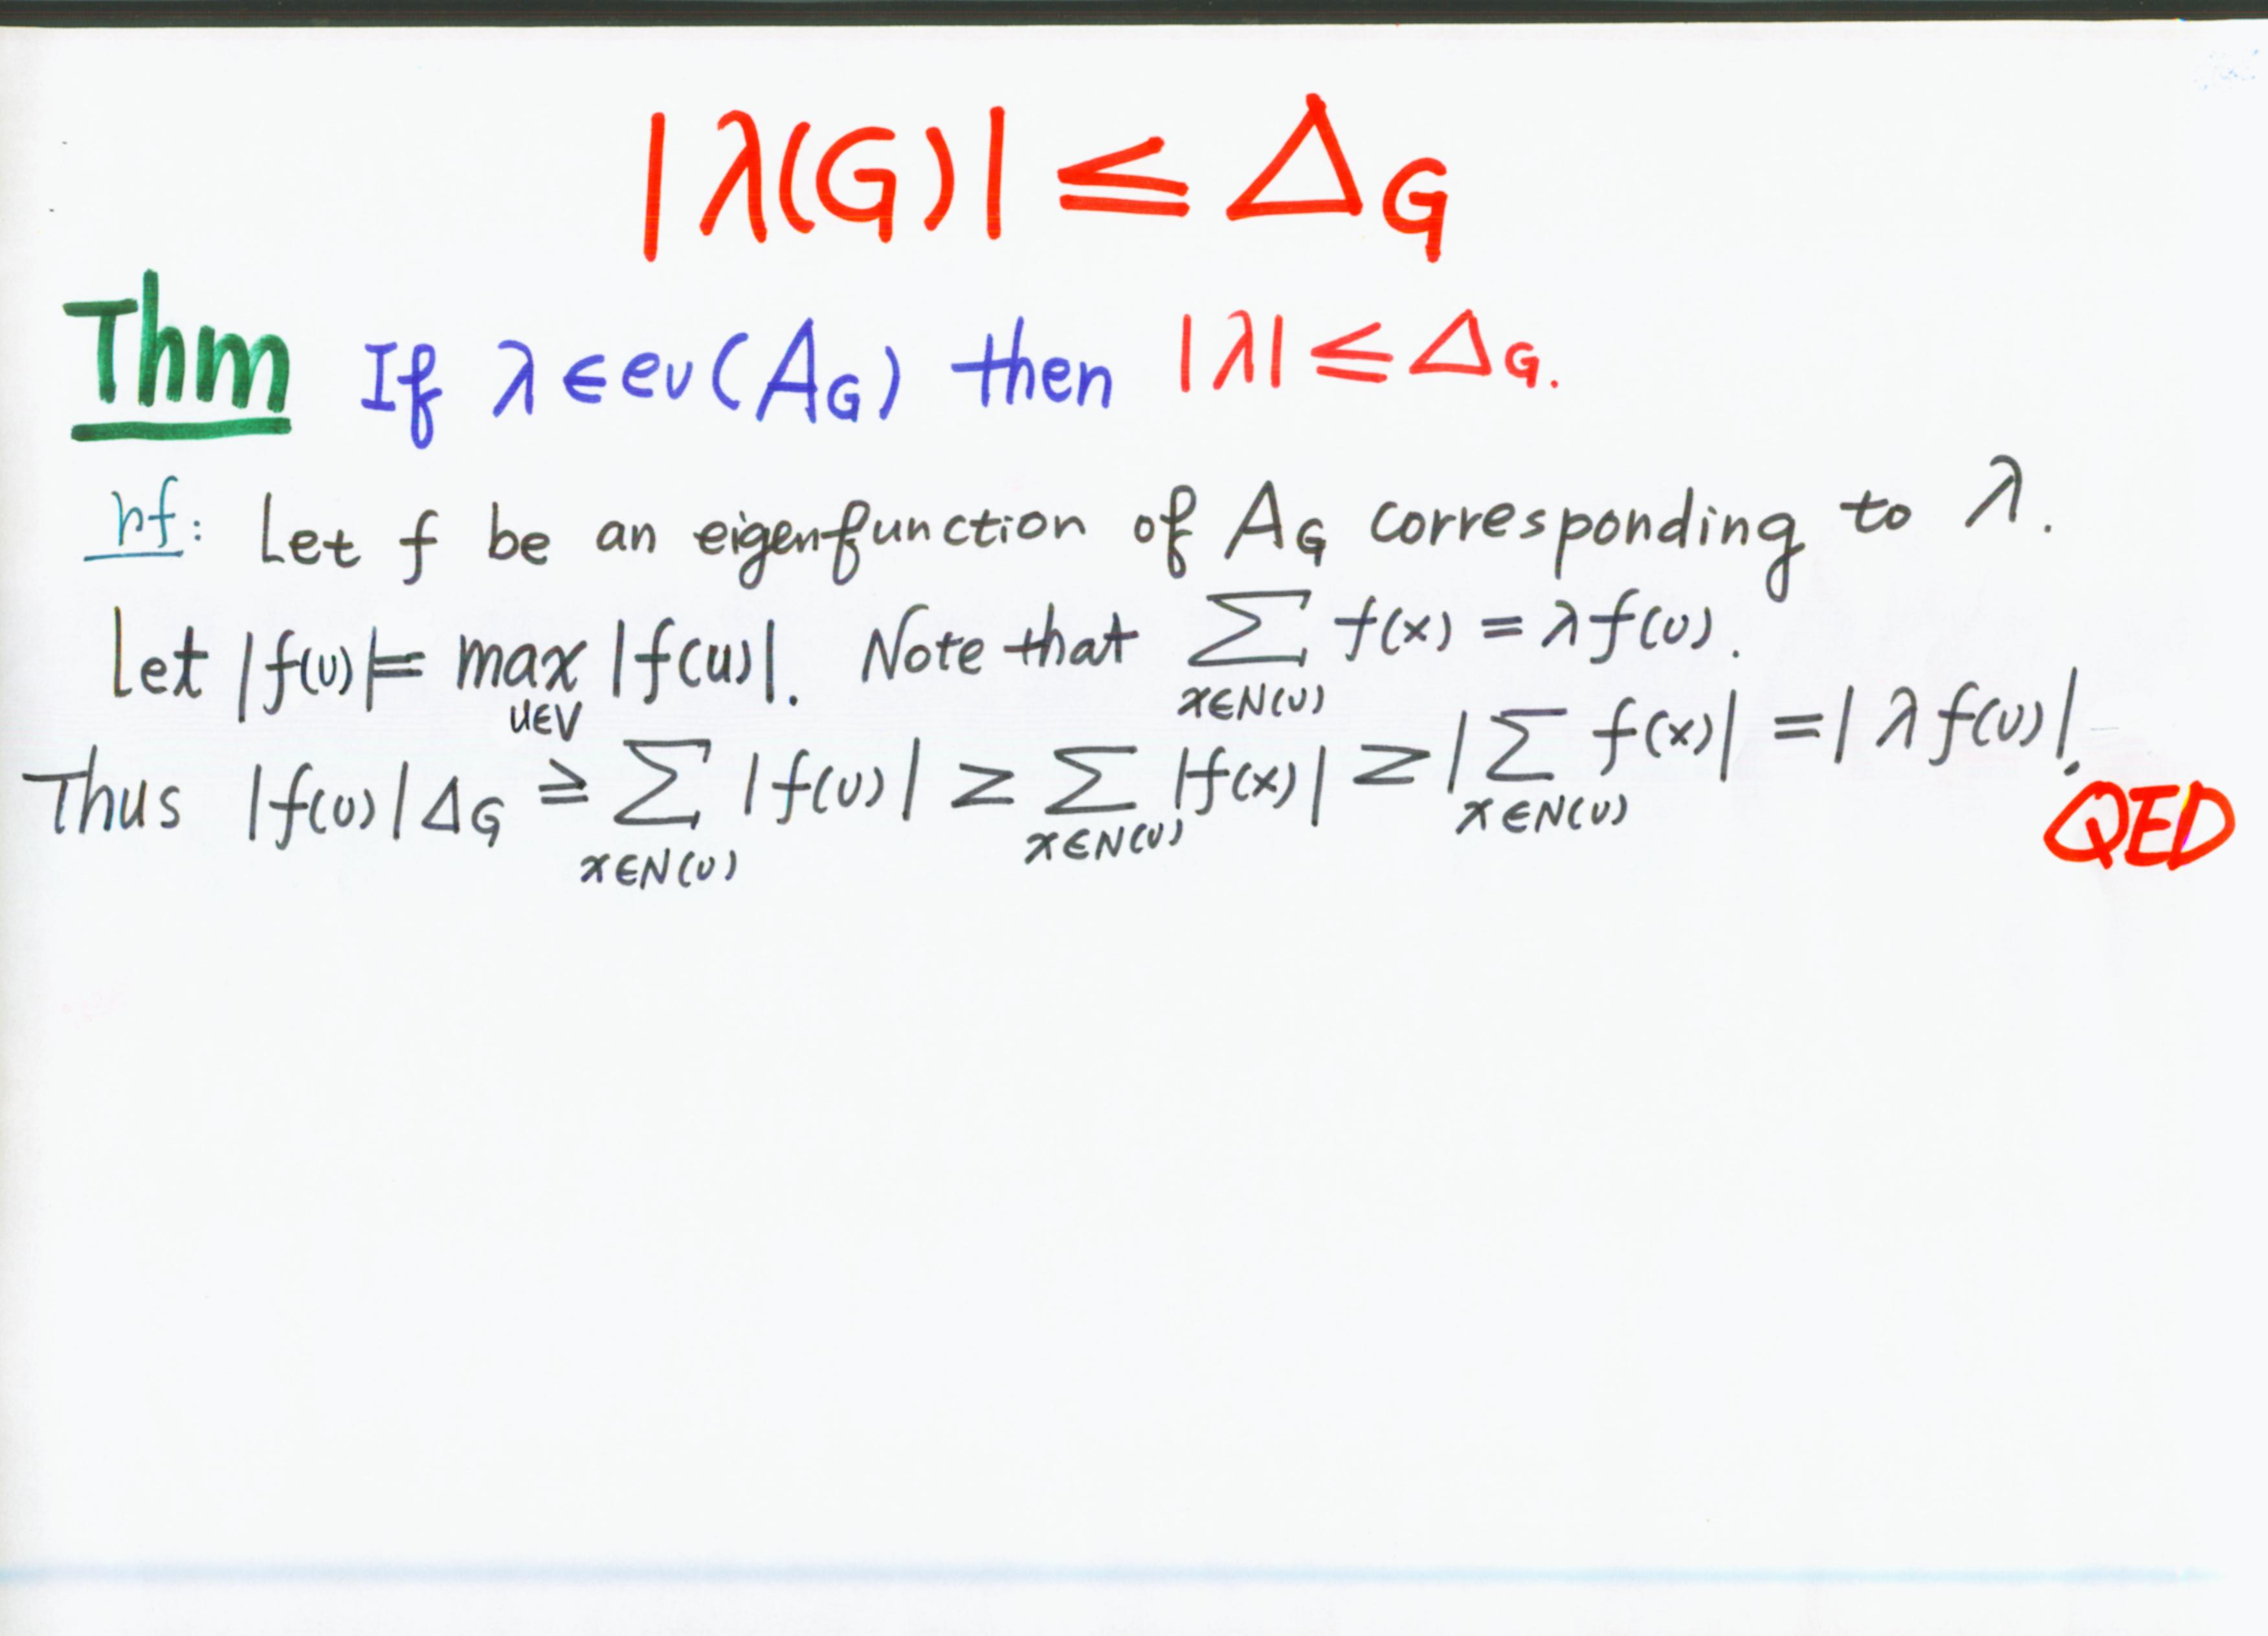 |λ(G)| ≤ Δ_G
Thm If λ ∈ ev(A_G) then |λ| ≤ Δ_G.
pf: Let f be an eigenfunction of A_G corresponding to λ.
Let |f(v)| = max_{u∈V} |f(u)|. Note that ∑_{x∈N(v)} f(x) = λf(v).
Thus |f(v)|Δ_G ≥ ∑_{x∈N(v)} |f(v)| ≥ ∑_{x∈N(v)} |f(x)| ≥ |∑_{x∈N(v)} f(x)| = |λf(v)|.
QED